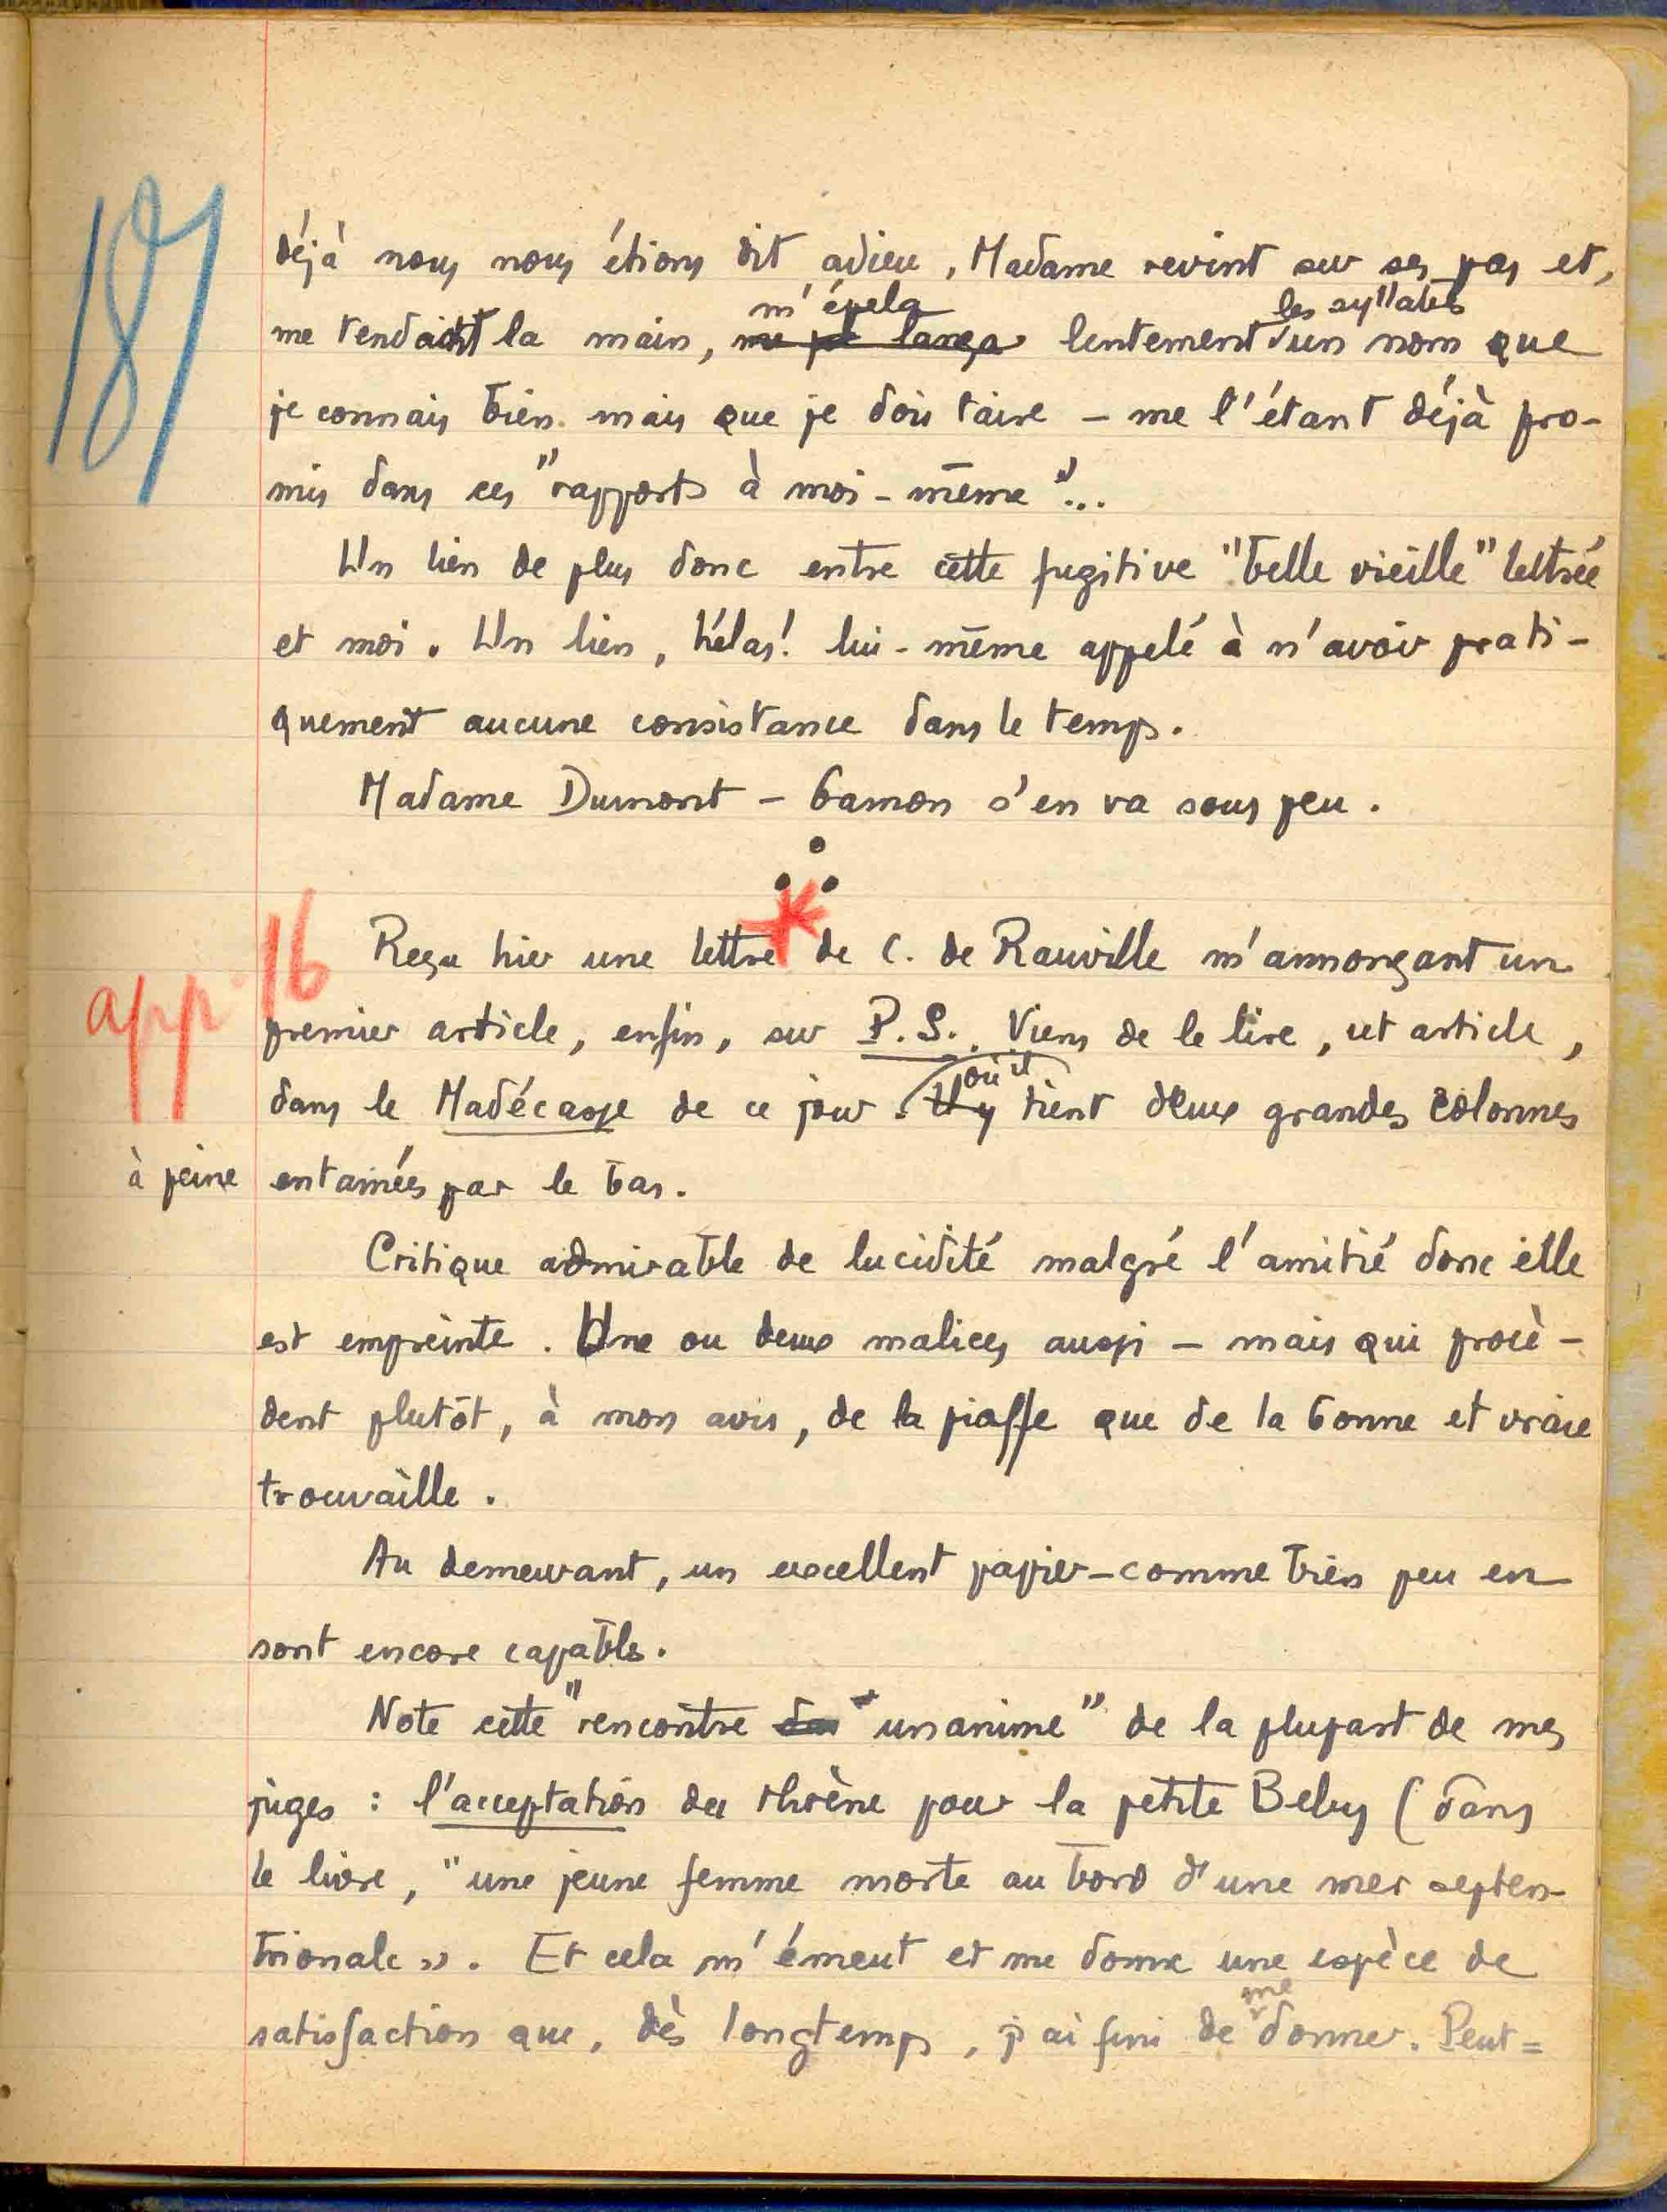 187
déjà nous nous étions dit adieu, Madame revint sur ses pas et,
m'épela les syllabes
me tendant la main, lança lentement d'un nom que
je connais bien mais que je dois taire – me l'étant déjà pro-
mis dans ces "rapports à moi-même"...
Un lien de plus donc entre cette fugitive "belle vieille" lettrée
et moi. Un lien, hélas! lui-même appelé à n'avoir prati-
quement aucune consistance dans le temps.
Madame Dumont-Gamon s'en va sous peu.
16 Reçu hier une lettre de C. de Rauville m'annonçant un
app.
premier article, enfin, sur P.S.. Viens de le lire, cet article,
où il
dans le Madécasse de ce jour. Il y tient deux grandes colonnes
à peine entamées par le bas.
Critique admirable de lucidité malgré l'amitié donc elle
est empreinte. Une ou deux malices aussi – mais qui procè-
dent plutôt, à mon avis, de la piaffe que de la bonne et vraie
trouvaille.
Au demeurant, un excellent papier – comme bien peu en
sont encore capables.
Note cette "rencontre unanime" de la plupart de mes
juges : l'acceptation du thrène pour la petite Beby (dans
le livre, "une jeune femme morte au bord d'une mer septen-
trionale ». Et cela m'émeut et me donne une espèce de
me
satisfaction que, dès longtemps, j'ai fini de donner. Peut=